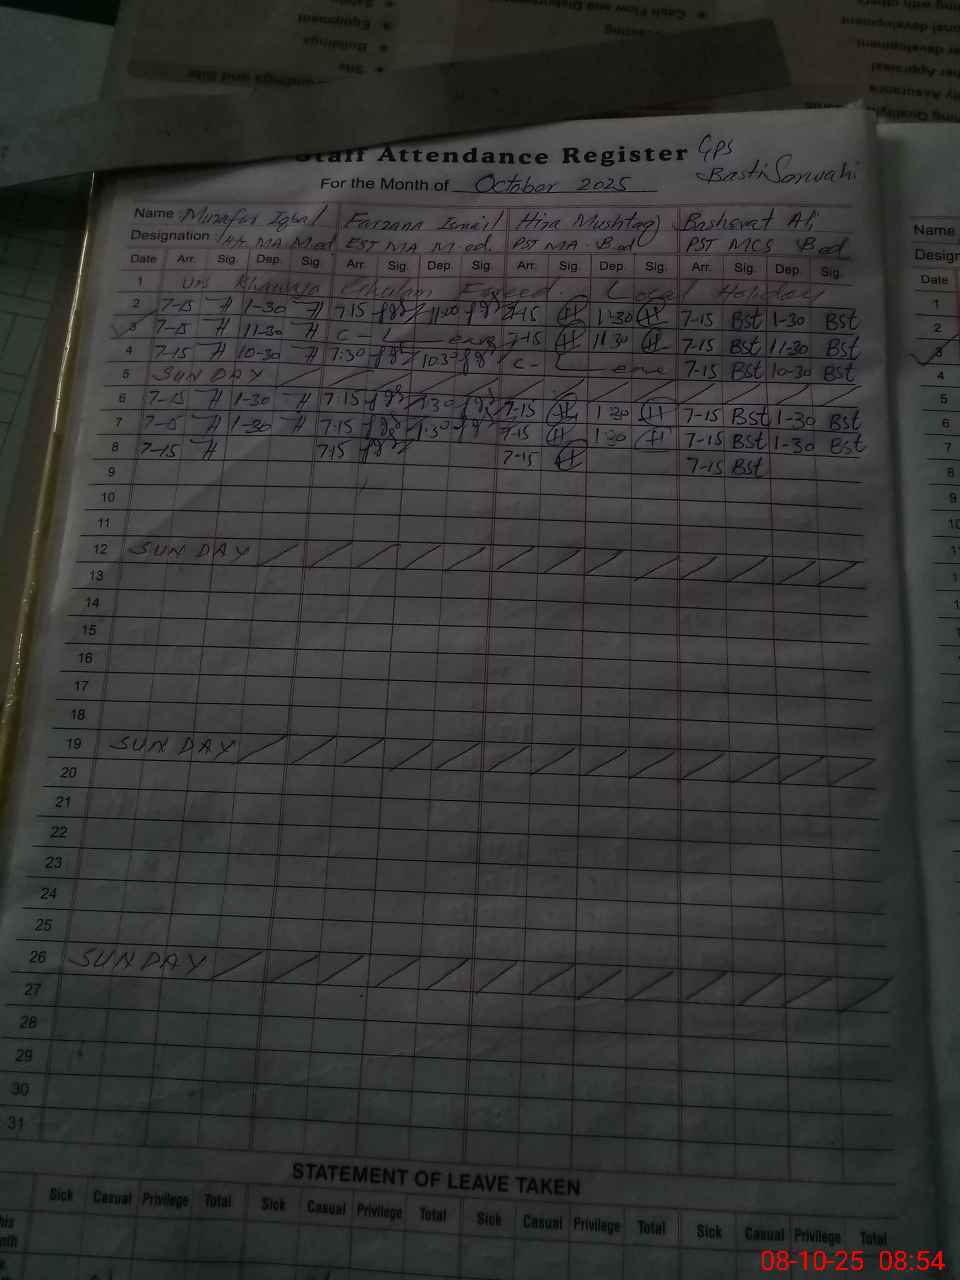 Cash Flow and Disbursement
Equipment
Buildings
Site
Staff Attendance Register GPS
For the Month of October 2025 Basti Sorwahi
Name: Iqbal Farzana Ismail Hira Mushtaq Basharat Ali
Designation: MA M.ed EST MA M.ed. PST MA B.ed PST MCS B.ed
Date Arr. Sig. Dep. Sig. Arr. Sig. Dep. Sig. Arr. Sig. Dep. Sig. Arr. Sig. Dep. Sig.
1 Urs Khawaja Ghulam Fareed. Local Holiday
2 7-15 H 1-30 H 7:15 7-15 H 1-30 H 7-15 BSt 1-30 BSt
3 7-15 H 11-30 H C- Leave 7-15 H 11 30 H 7-15 BSt 11-30 BSt
4 7-15 H 10-30 H 7:30 10:30 C- Leave 7-15 BSt 10-30 BSt
5 SUNDAY
6 7-15 H 1-30 H 7:15 1:30 7-15 H 1 30 H 7-15 BSt 1-30 BSt
7 7-15 H 1-30 H 7:15 1:30 7-15 H 1 30 H 7-15 BSt 1-30 BSt
8 7-15 H 7:15 7-15 H 7-15 BSt
9
10
11
12 SUNDAY
13
14
15
16
17
18
19 SUNDAY
20
21
22
23
24
25
26 SUNDAY
27
28
29
30
31
STATEMENT OF LEAVE TAKEN
Sick Casual Privilege Total Sick Casual Privilege Total Sick Casual Privilege Total Sick Casual Privilege Total
Name
Date
1
2
3
4
5
6
7
8
9
08-10-25 08:54